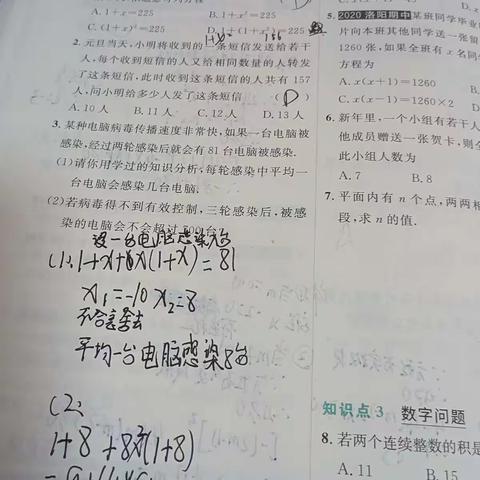 A. 1+x=225
B. 1+x²=225
C. (1+x)²=225
2. 元旦当天,小明将收到的一条短信发送给若干
人,每个收到短信的人又给相同数量的人转发
了这条短信,此时收到这条短信的人共有 157
人,问小明给多少人发了这条短信 ( D )
A. 10 人 B. 11 人 C. 12 人 D. 13 人
3. 某种电脑病毒传播速度非常快,如果一台电脑被
感染,经过两轮感染后就会有 81 台电脑被感染.
(1)请你用学过的知识分析:每轮感染中平均一
台电脑会感染几台电脑.
(2)若病毒得不到有效控制,三轮感染后,被感
染的电脑会不会超过 700 台?
设一台电脑感染x台
(1): 1+x+x(1+x)=81
x₁=-10 x₂=8
不合意舍去
平均一台电脑感染8台
(2):
1+8+8²(1+8)
5. 2020 洛阳期中 某班同学毕业
片向本班其他同学送一张留
1260 张,如果全班有 x 名同
方程为
A. x(x+1)=1260
C. x(x-1)=1260×2
6. 新年里,一个小组有若干人
他成员赠送一张贺卡,则全
此小组人数为
A. 7 B. 8
7. 平面内有 n 个点,两两相
段,求 n 的值.
知识点 3 数字问题
8. 若两个连续整数的积是
A. 11 B. 15